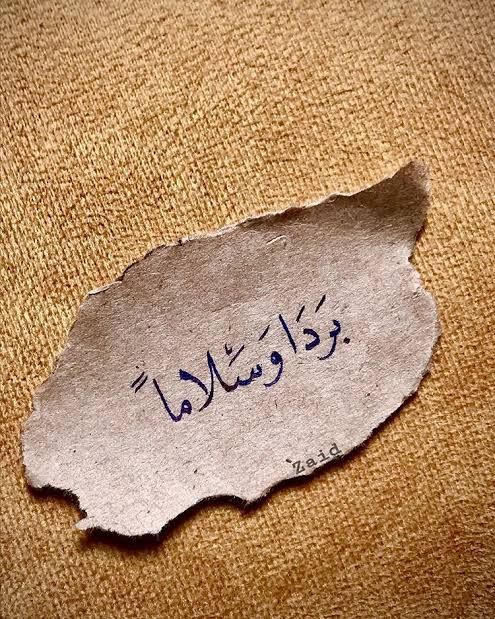 بَردَا وَسَلاماً
Zaid